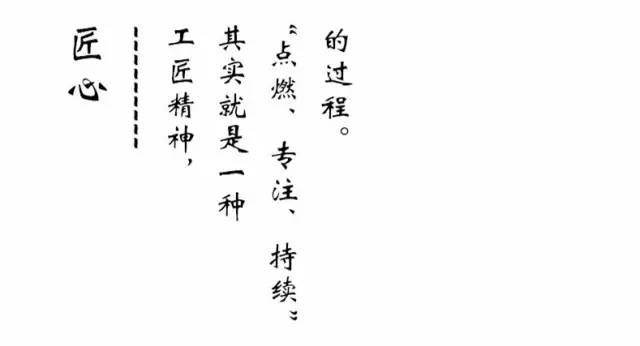 匠心
工匠精神，
其实就是一种
“点燃、专注、持续”
的过程。